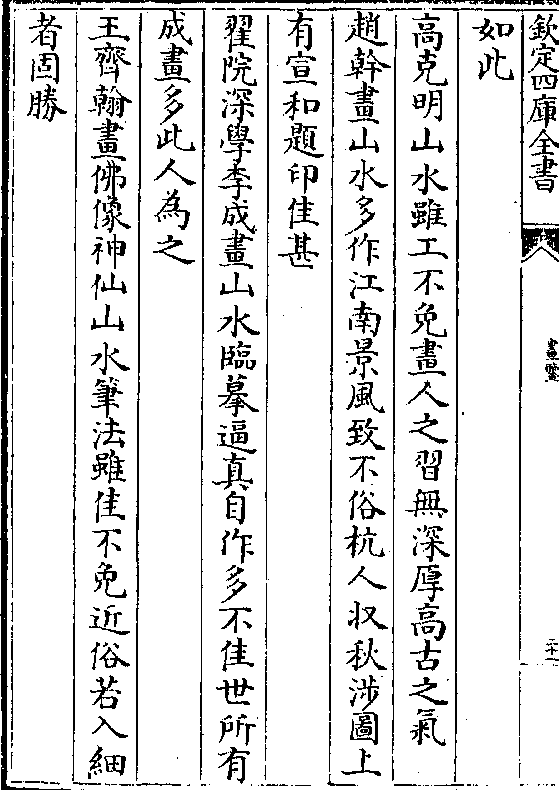 欽定四庫全書
畫鑒
二十一
如此
高克明山水雖工不免畫人之習無深厚高古之氣
趙幹畫山水多作江南景風致不俗杭人収秋涉圖上
有宣和題印佳甚
翟院深學李成畫山水臨摹逼真自作多不佳世所有
成畫多此人為之
王齊翰畫佛像神仙山水筆法雖佳不免近俗若入細
者固勝